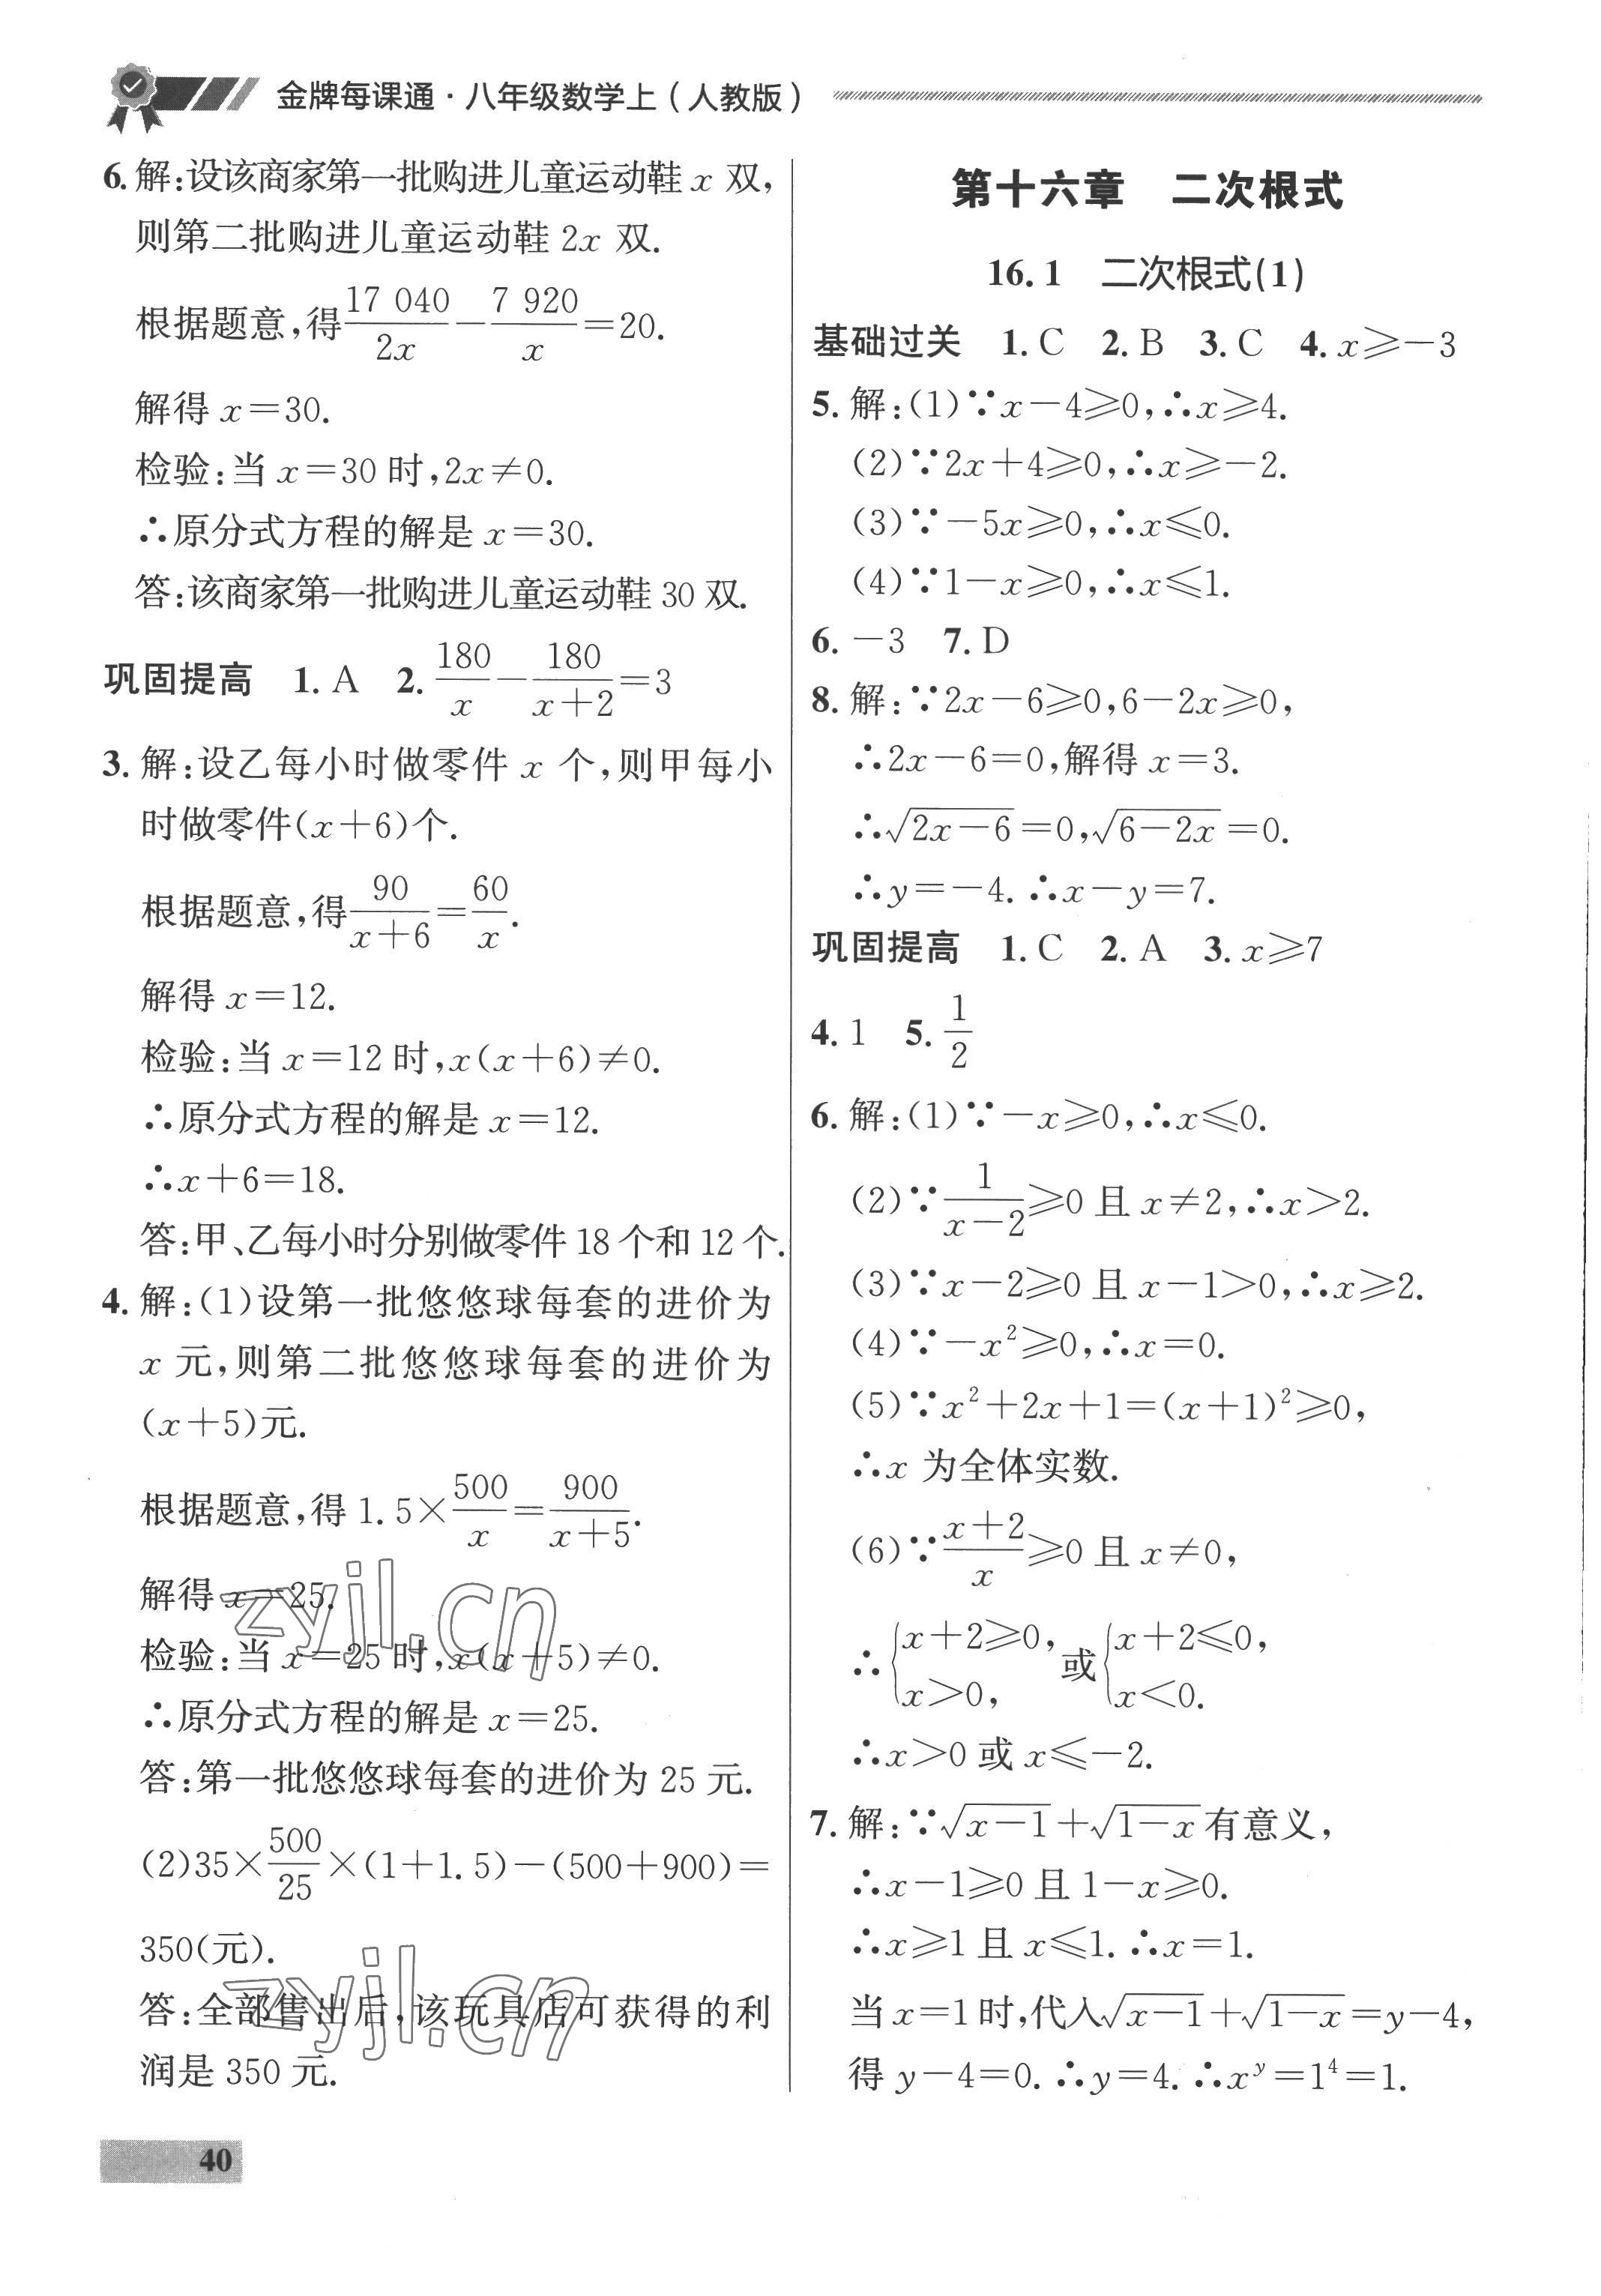 金牌每课通·八年级数学上(人教版)
6. 解:设该商家第一批购进儿童运动鞋 x 双,
则第二批购进儿童运动鞋 2x 双.
根据题意,得 17 040/2x − 7 920/x =20.
解得 x=30.
检验:当 x=30 时,2x≠0.
∴原分式方程的解是 x=30.
答:该商家第一批购进儿童运动鞋 30 双.
巩固提高 1. A 2. 180/x − 180/(x+2) =3
3. 解:设乙每小时做零件 x 个,则甲每小
时做零件(x+6)个.
根据题意,得 90/(x+6) = 60/x.
解得 x=12.
检验:当 x=12 时,x(x+6)≠0.
∴原分式方程的解是 x=12.
∴x+6=18.
答:甲、乙每小时分别做零件 18 个和 12 个.
4. 解:(1)设第一批悠悠球每套的进价为
x 元,则第二批悠悠球每套的进价为
(x+5)元.
根据题意,得 1.5× 500/x = 900/(x+5).
解得 x=25.
检验:当 x=25 时,x(x+5)≠0.
∴原分式方程的解是 x=25.
答:第一批悠悠球每套的进价为 25 元.
(2)35× 500/25 ×(1+1.5)−(500+900)=
350(元).
答:全部售出后,该玩具店可获得的利
润是 350 元.
第十六章 二次根式
16.1 二次根式(1)
基础过关 1. C 2. B 3. C 4. x≥−3
5. 解:(1)∵x−4≥0,∴x≥4.
(2)∵2x+4≥0,∴x≥−2.
(3)∵−5x≥0,∴x≤0.
(4)∵1−x≥0,∴x≤1.
6. −3 7. D
8. 解:∵2x−6≥0,6−2x≥0,
∴2x−6=0,解得 x=3.
∴√(2x−6)=0,√(6−2x)=0.
∴y=−4. ∴x−y=7.
巩固提高 1. C 2. A 3. x≥7
4. 1 5. 1/2
6. 解:(1)∵−x≥0,∴x≤0.
(2)∵1/(x−2)≥0 且 x≠2,∴x>2.
(3)∵x−2≥0 且 x−1>0,∴x≥2.
(4)∵−x²≥0,∴x=0.
(5)∵x²+2x+1=(x+1)²≥0,
∴x 为全体实数.
(6)∵(x+2)/x≥0 且 x≠0,
∴{x+2≥0, x>0, 或{x+2≤0, x<0.
∴x>0 或 x≤−2.
7. 解:∵√(x−1)+√(1−x)有意义,
∴x−1≥0 且 1−x≥0.
∴x≥1 且 x≤1. ∴x=1.
当 x=1 时,代入√(x−1)+√(1−x)=y−4,
得 y−4=0. ∴y=4. ∴xʸ=1⁴=1.
zyjl.cn
zyjl.cn
40